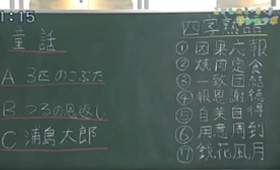 1:15
童話
A 3匹のこぶた
B つるの恩返し
C 浦島太郎
四字熟語
① 因果応報
② 焼肉定食
③ 一致団結
④ 報恩謝徳
⑤ 自業自得
⑥ 用意周到
⑦ 鏡花風月